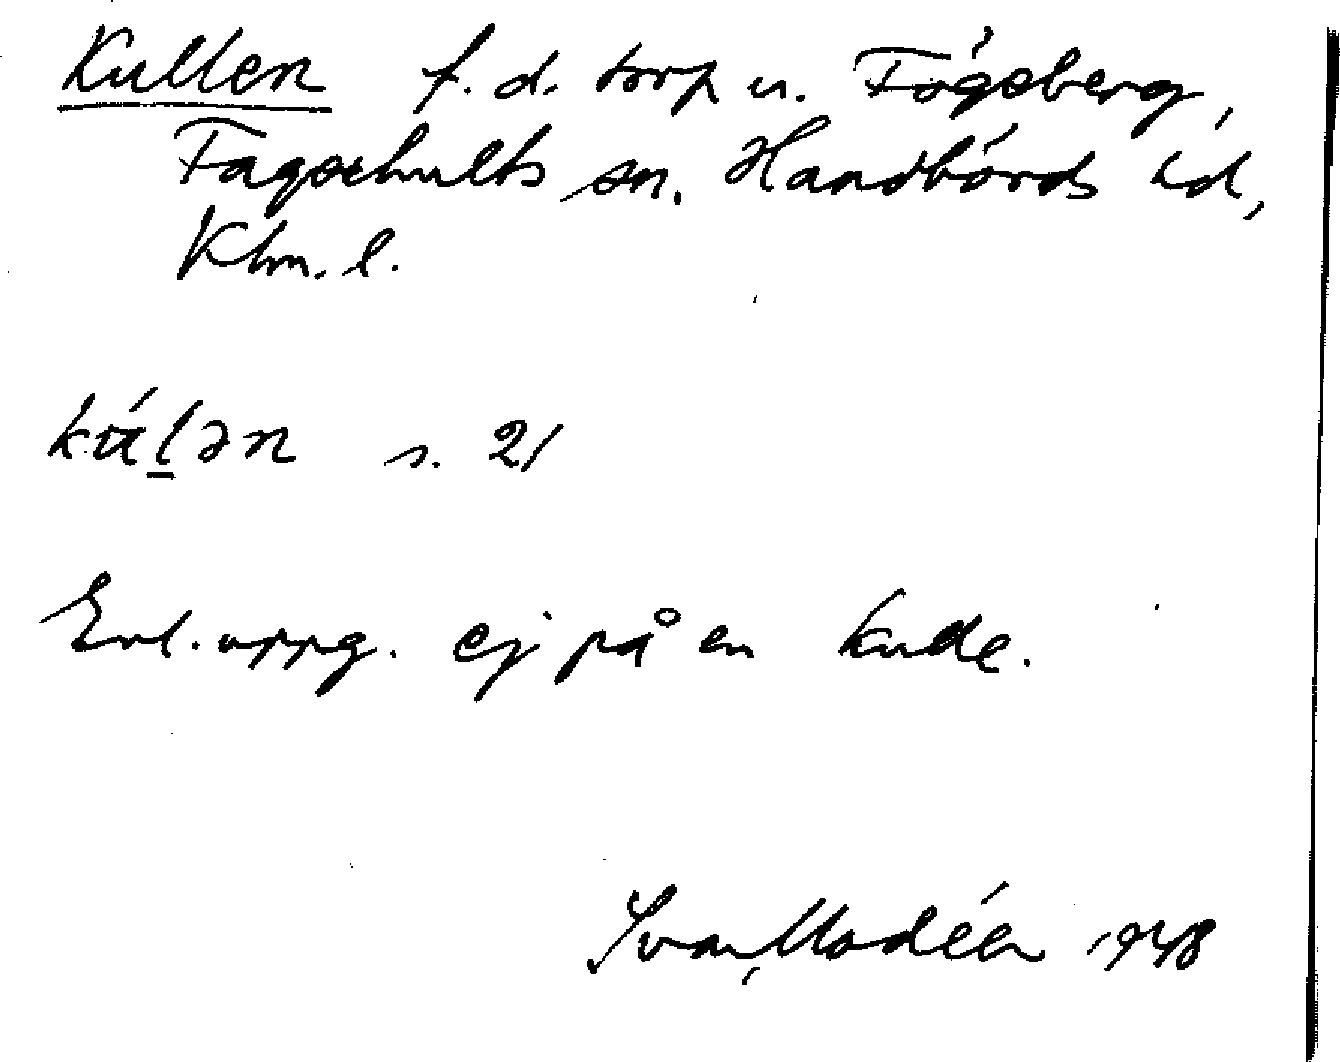 Kullen f. d. torp u. Fågeberg,
Fagerhults sn. Handbörds hd,
Klm. l.
kúlən s. 21
Enl. uppg. ej på en kulle.
Ivar Modéer 1948